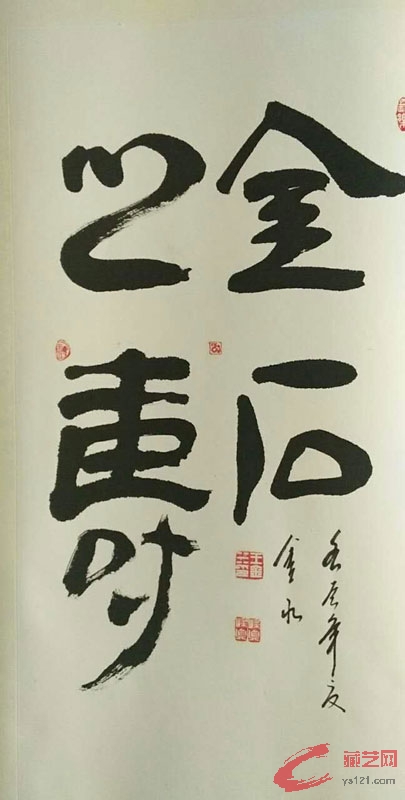 金石
之壽
壬辰年夏
金
藏艺网
ys121.com